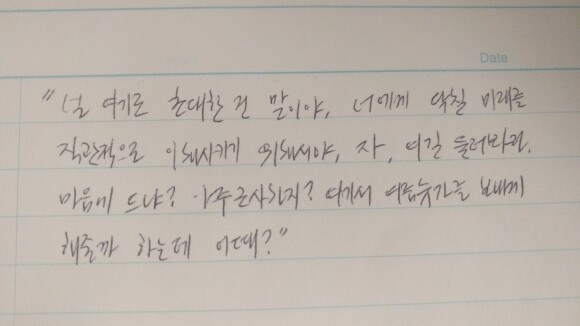 Date
"널 여기로 초대한 건 말이야, 너에게 닥칠 미래를
직관적으로 이해시키기 위해서야, 자, 여길 둘러봐라.
마음에 드냐? 아주 근사하지? 여기서 여름휴가를 보내게
해줄까 하는데 어때?"